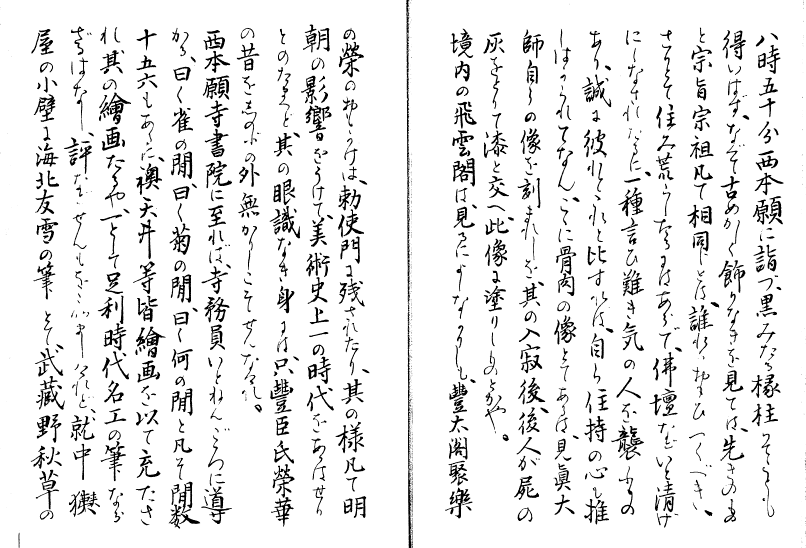 八時五十分西本願に詣づ、黒みたる椽柱
得いはず、なべて古めかしく飾りなきを見ては、先きのもの
と宗旨宗祖凡て相同じとは、誰れかおもひつくべき、
さりとて住み荒らしたるにはあらで、佛壇などいと清げ
にしなされたるに、一種言ひ難き気の人を襲ふもの
あり、誠に彼れとこれと比すれば、自ら住持の心も推
しはかられてなん、ここに骨肉の像とてあるは、見眞大
師自らの像を刻まれしを、其の入寂後、後人が屍の
灰をとりて漆と交へ、此像に塗りしものとかや。
境内の飛雲閣は、見るによしなかりしも、豊太閤聚樂
の榮のおもかげは、勅使門に残されたり、其の様凡て明
朝の影響をうけて、美術史上一の時代をあらはせり
とのなれど、其の眼識なき身には、只豊臣氏榮華
の昔をしのぶの外無かりしこそせんなけれ。
西本願寺書院に至れば、寺務員いとねんごろに導
かる、曰く雀の間、曰く菊の間、曰く何の間と凡そ間数
十五六もあらん、襖、天井等皆繪画を以て充たさ
れ、其の繪画たるや、一として足利時代名工の筆なら
ざるはなし、評などせんもをこがましけれど、就中狭
屋の小壁に海北友雪の筆とて、武藏野秋草の